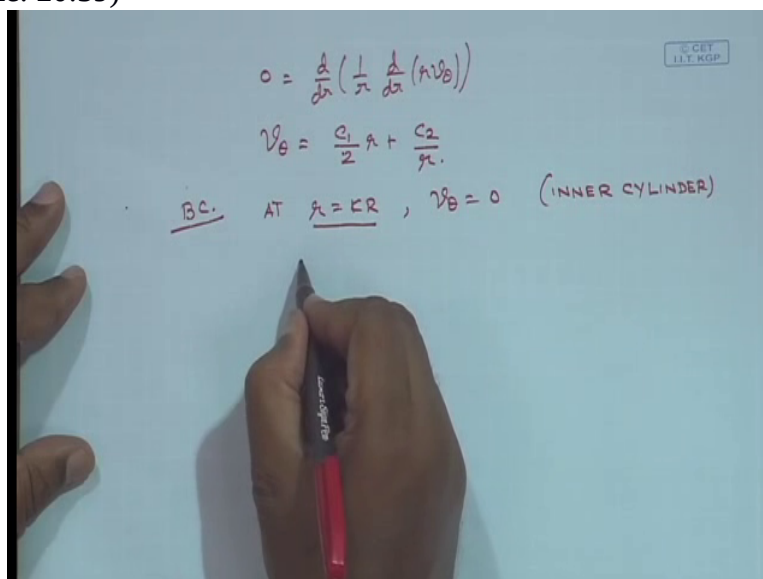 © CET
I.I.T. KGP
0 = d/dr (1/r d/dr (r v_θ))
v_θ = C₁/2 r + C₂/r.
BC. AT r = κR , v_θ = 0 (INNER CYLINDER)